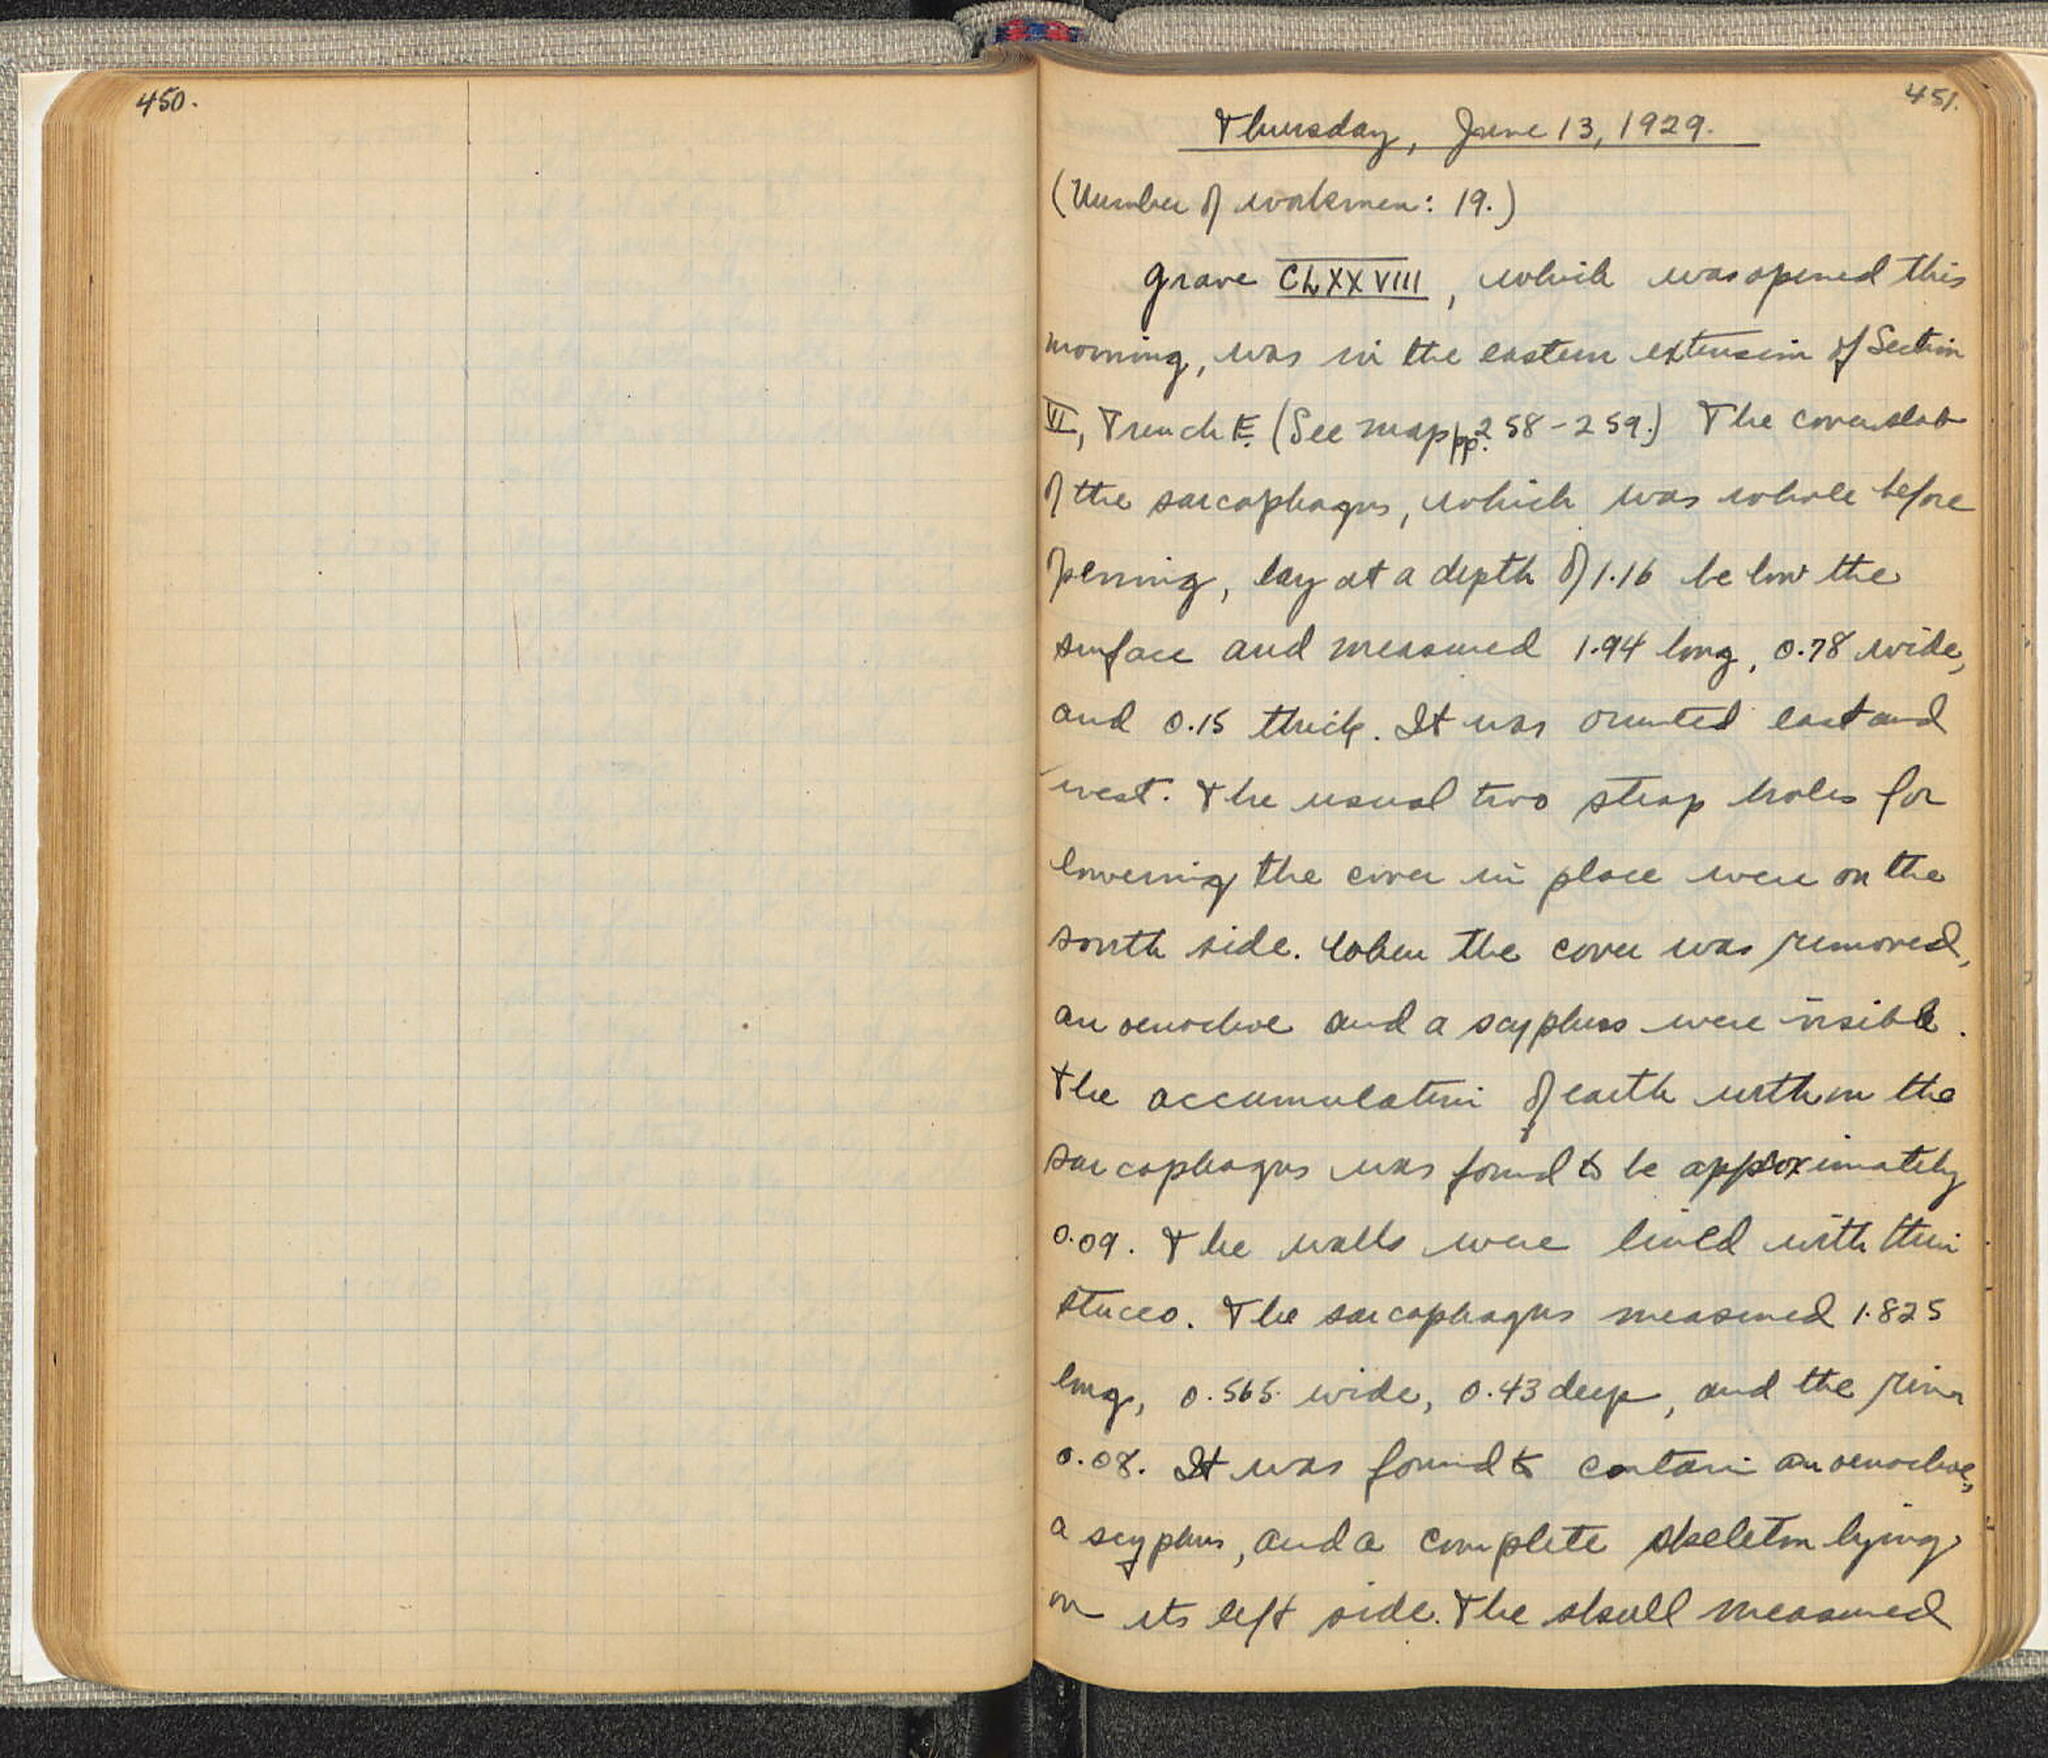 450.
451.
Thursday, June 13, 1929.
(Number of workmen: 19.)
Grave CLXXVIII, which was opened this
morning, was in the eastern extension of Section
VI, Trench E. (See map pp. 258-259.) The cover slab
of the sarcophagus, which was whole before
opening, lay at a depth of 1.16 below the
surface and measured 1.94 long, 0.78 wide,
and 0.15 thick. It was oriented east and
west. The usual two strap holes for
lowering the cover in place were on the
south side. When the cover was removed,
an oenochoe and a scyphus were visible.
The accumulation of earth within the
sarcophagus was found to be approximately
0.09. The walls were lined with thin
stucco. The sarcophagus measured 1.825
long, 0.565 wide, 0.43 deep, and the rim
0.08. It was found to contain an oenochoe,
a scyphus, and a complete skeleton lying
on its left side. The skull measured